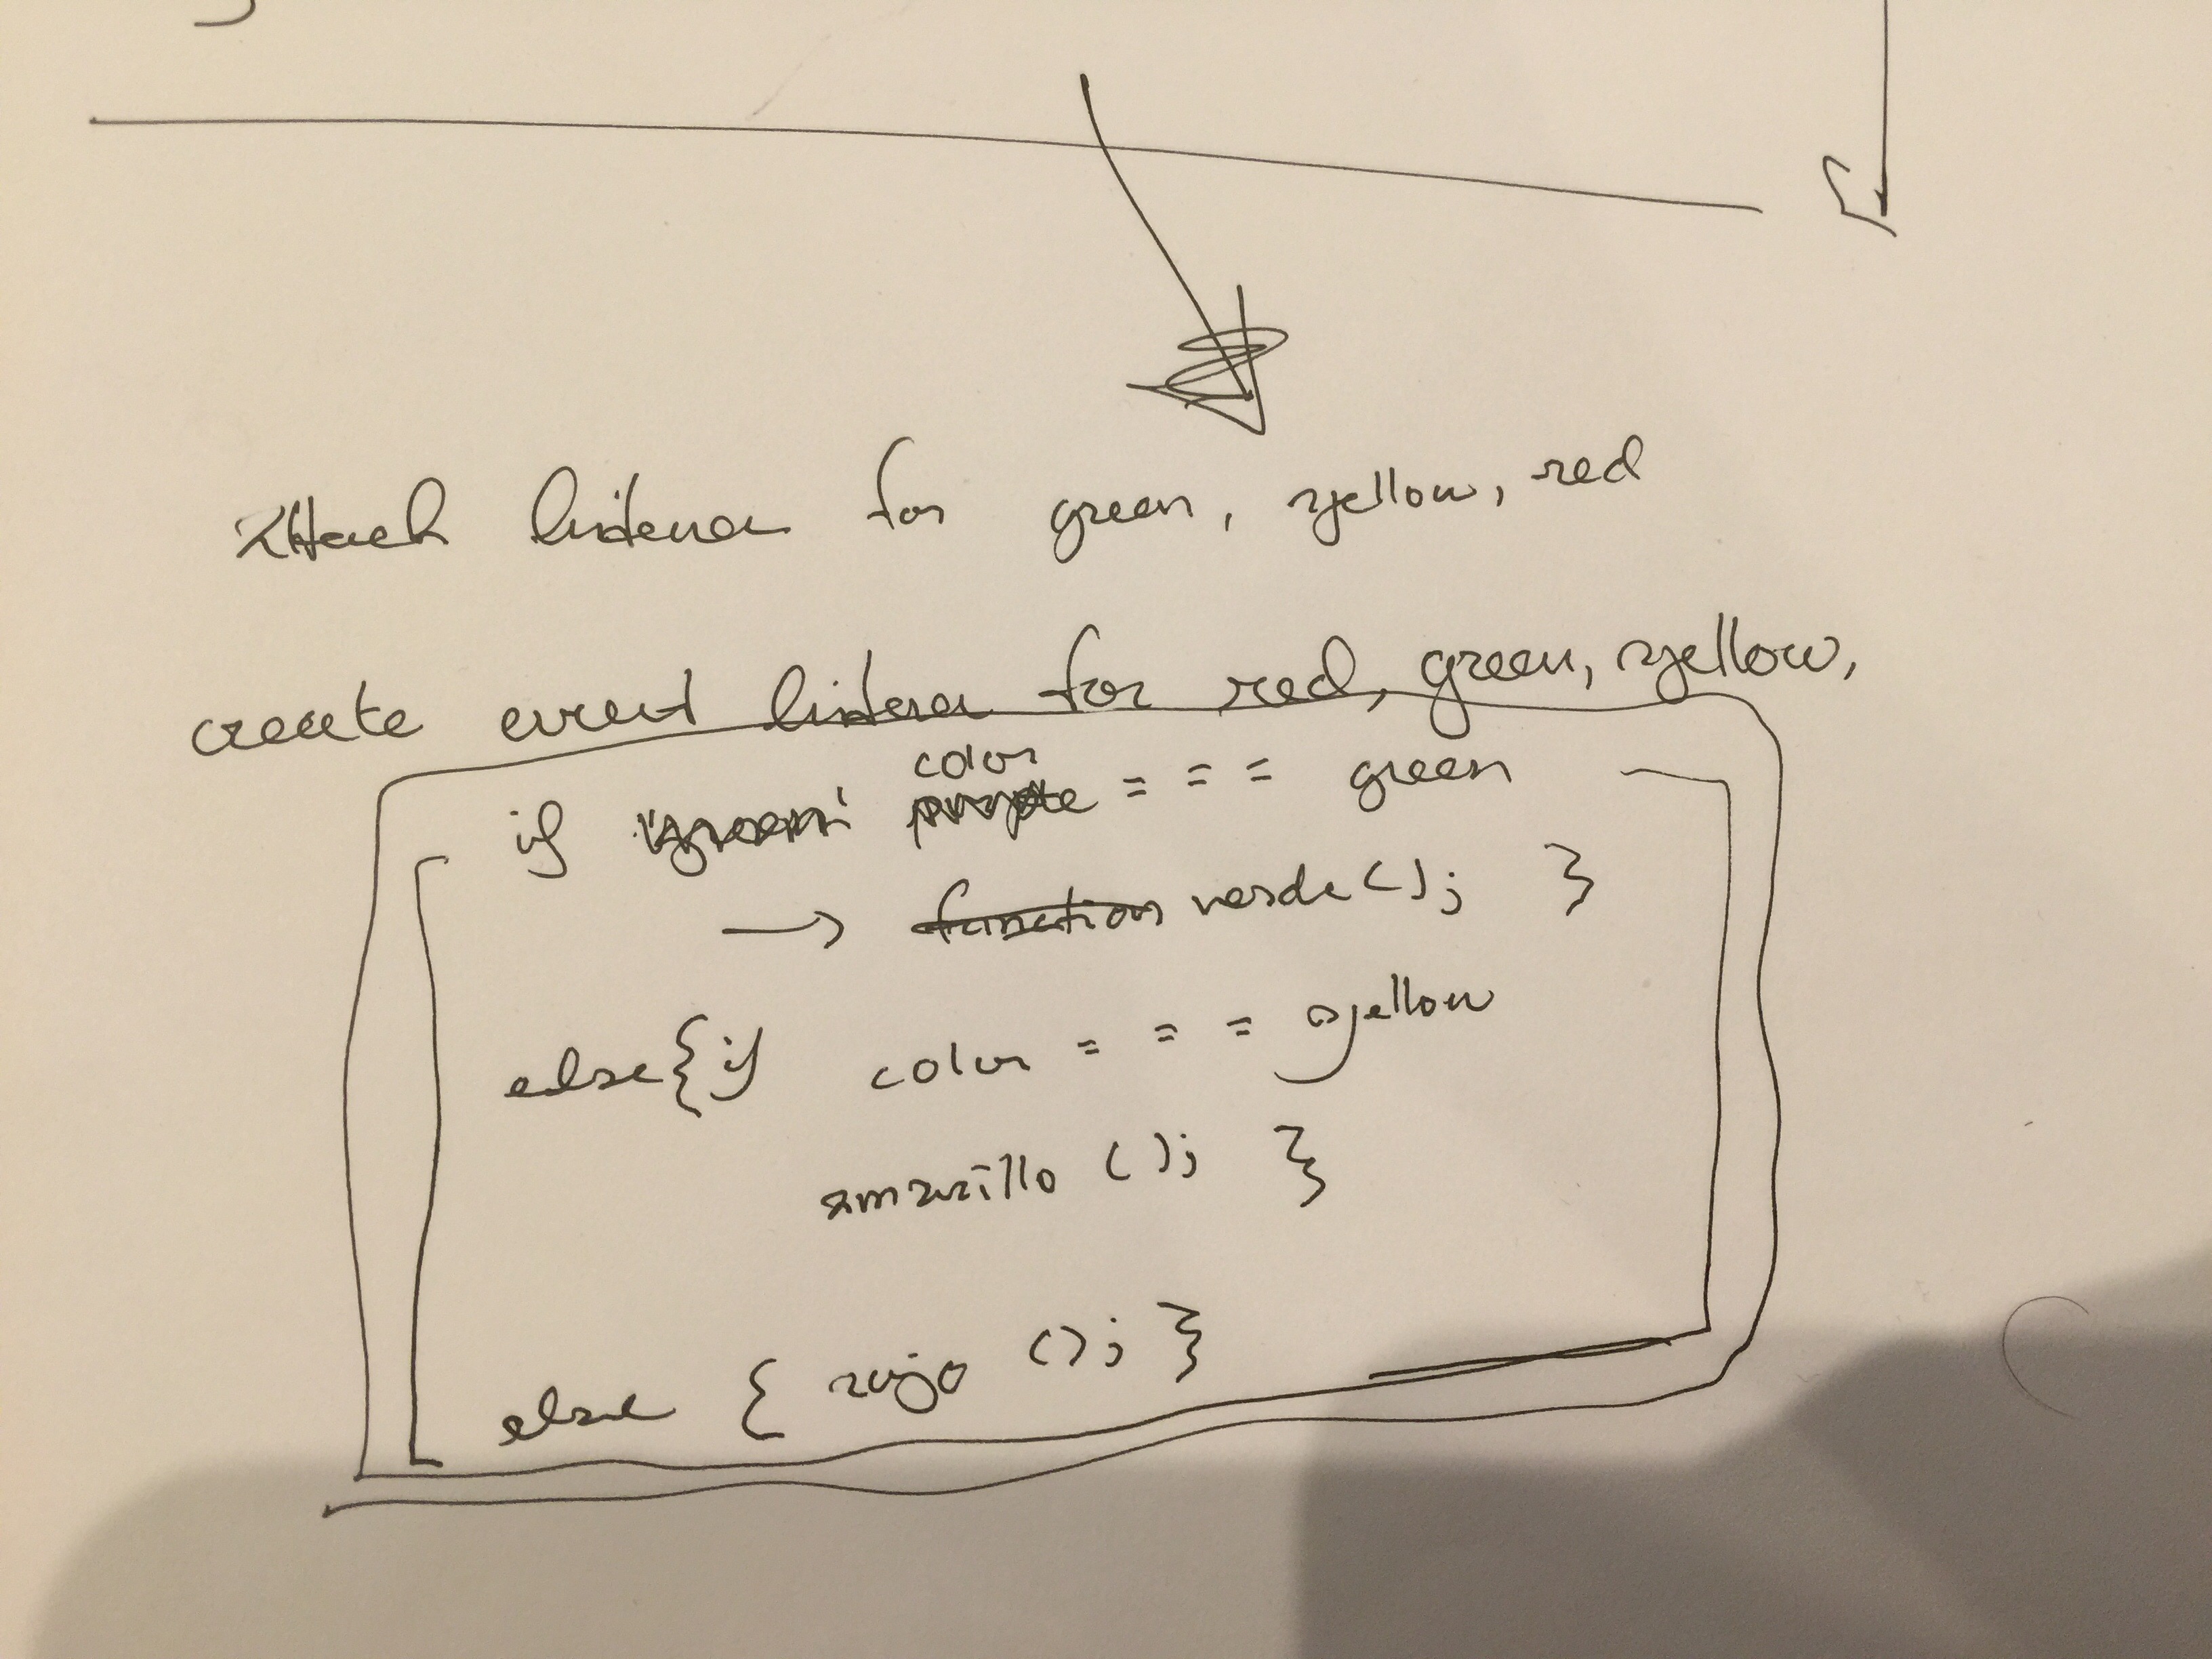 Attach listener for green, yellow, red
create event listener for red, green, yellow,
color
if === green
→ function verde(); }
else{if color === yellow
amarillo (); }
else { rojo (); }